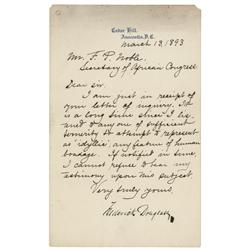 Cedar Hill,
Anacostia, D.C.
March 13, 1893
Mr. F. P. Noble.
Secretary of African Congress
Dear sir.
I am just in receipt of
your letter of inquiry. It
is a long time since I
and any one of sufficient
temerity to attempt to represent
as idyllic, any feature of human
bondage. If notified in time,
I cannot refuse to bear my
testimony upon this subject.
Very truly yours,
Frederick Douglass